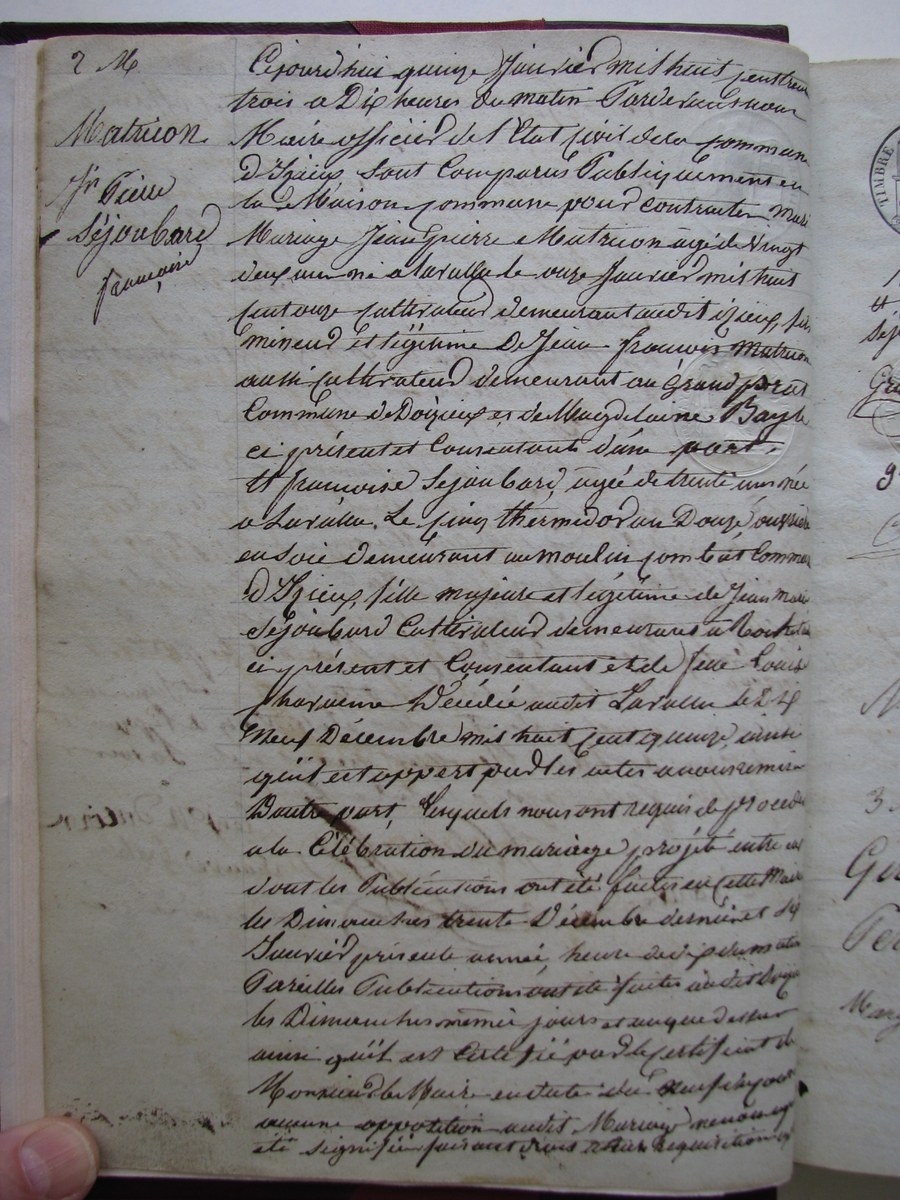 2 M
Matricon
Jn Pierre
Séjoubard
françoise
Cejourd'hui quinze Janvier mil huit cent trente
trois a Dix heures du matin Pardevant nous
Maire officier de l'Etat Civil de la commune
d'Izieux sont Comparus Publiquement en
la Maison commune pour contracter mari
Mariage Jean Pierre Matricon agé de Vingt
deux ans né a lavalla le onze Janvier mil huit
cent onze cultivateur demeurant audit izieux, fils
mineur et légitime De Jean françois Matricon
aussi cultivateur demeurant au Grand
Commune de Doizieux et de Magdelaine Bayle
ci présent et Consentant d'une part,
Et françoise Sejoubard, agée de trente ans née
a Lavalla, Le cinq thermidor an Douze, ouvrière
en soie demeurant au moulin Commune
d'Izieux, fille majeure et légitime de Jean Marie
Séjoubard Cultivateur demeurant a
ci présent et Consentant et de feue Louise
Décédée audit Lavalla le
Neuf Décembre mil huit cent quinze, ainsi
qu'il est apport par les actes a nous remis
D'autre part, Lesquels nous ont requis de procéder
a la Célébration du mariage projété entre eux
dont les Publications ont été faites en cette Mairie
les Dimanches trente Décembre dernier et six
Janvier présente année, heure de dix du matin
Pareilles Publications ont été faites audit Doizieux
les Dimanches même jours et an que dessus
ainsi qu'il est Certifié par le Certificat de
Monsieur le Maire en date du neuf
aucune opposition audit Mariage ne nous ayant
été signifiée faisant droit a leur requisition
TIMBRE
3